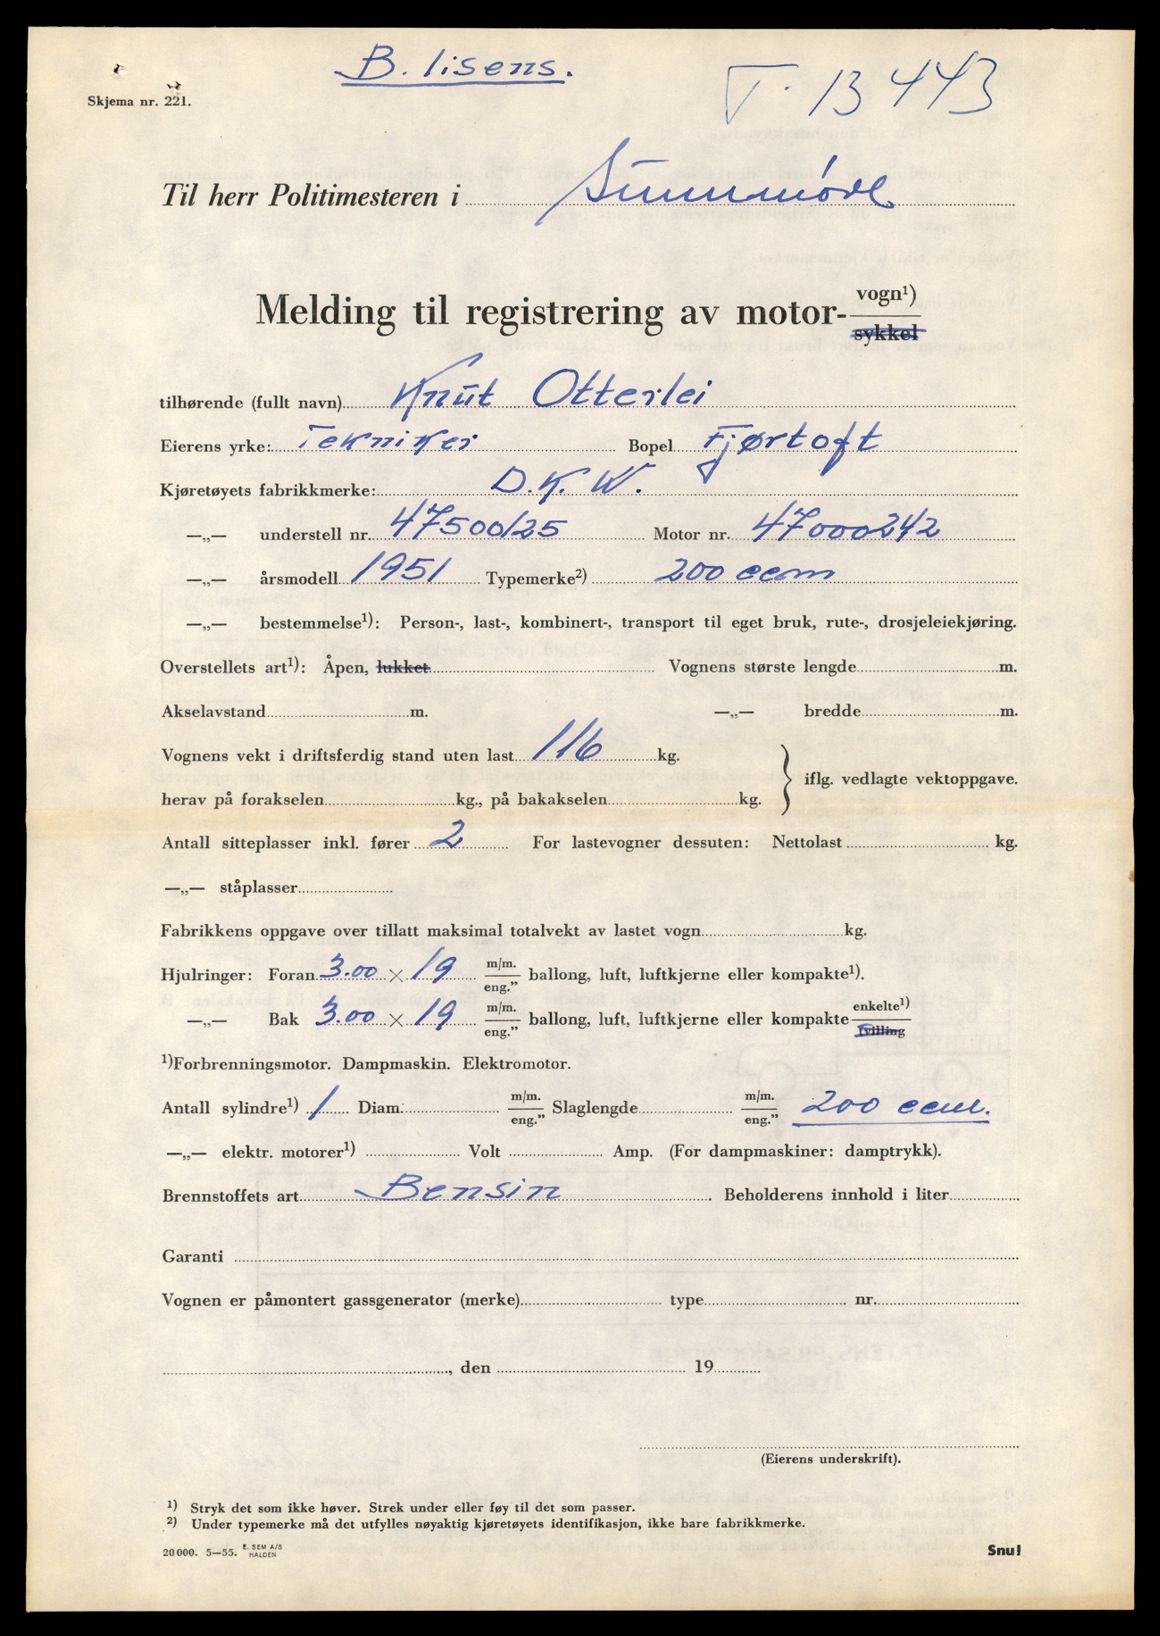 B. lisens.
T. 13443
Skjema nr. 221.
Til herr Politimesteren i Sunnmøre
Melding til registrering av motor- vogn¹)
sykkel
tilhørende (fullt navn) Knut Otterlei
Eierens yrke: Tekniker Bopel Fjørtoft
Kjøretøyets fabrikkmerke: D.K.W.
—„— understell nr. 47500125 Motor nr. 47000242
—„— årsmodell 1951 Typemerke²) 200 ccm
—„— bestemmelse¹): Person-, last-, kombinert-, transport til eget bruk, rute-, drosjeleiekjøring.
Overstellets art¹): Åpen, lukket Vognens største lengde m.
Akselavstand m. —„— bredde m.
Vognens vekt i driftsferdig stand uten last 116 kg.
iflg. vedlagte vektoppgave.
herav på forakselen kg., på bakakselen kg.
Antall sitteplasser inkl. fører 2 For lastevogner dessuten: Nettolast kg.
—„— ståplasser
Fabrikkens oppgave over tillatt maksimal totalvekt av lastet vogn kg.
Hjulringer: Foran 3.00 × 19 m/m. eng.” ballong, luft, luftkjerne eller kompakte¹).
—„— Bak 3.00 × 19 m/m. eng.” ballong, luft, luftkjerne eller kompakte enkelte¹) tvilling
¹)Forbrenningsmotor. Dampmaskin. Elektromotor.
Antall sylindre¹) 1 Diam. m/m. eng.” Slaglengde m/m. eng.” 200 ccm.
—„— elektr. motorer¹) Volt Amp. (For dampmaskiner: damptrykk).
Brennstoffets art Bensin Beholderens innhold i liter
Garanti
Vognen er påmontert gassgenerator (merke) type nr.
, den 19
(Eierens underskrift).
¹) Stryk det som ikke høver. Strek under eller føy til det som passer.
²) Under typemerke må det utfylles nøyaktig kjøretøyets identifikasjon, ikke bare fabrikkmerke.
20000. 5—55. E. SEM A/S HALDEN
Snu!